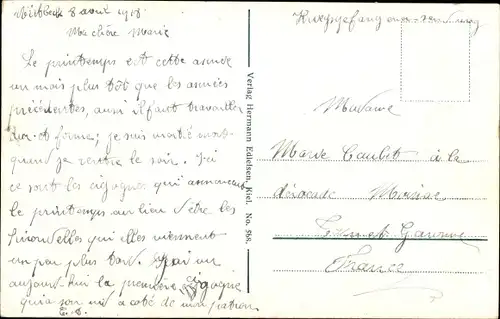 8 avril 1918
Ma chère Marie
Le printemps est cette année
un mois plus tôt que les années
précédentes, aussi il faut travailler
dur et ferme; je suis
quand je rentre le soir. Ici
ce sont les cigognes qui annoncent
le printemps au lieu d'être les
hirondelles qui elles viennent
un peu plus tard. J'ai vu
aujourd'hui la première cigogne
qui a son nid a coté de mon patron
Verlag Hermann Edlefsen, Kiel. No. 598.
Kriegsgefangenensendung
Madame
Marie Caubet à la
Moissac
Tarn et Garonne
France